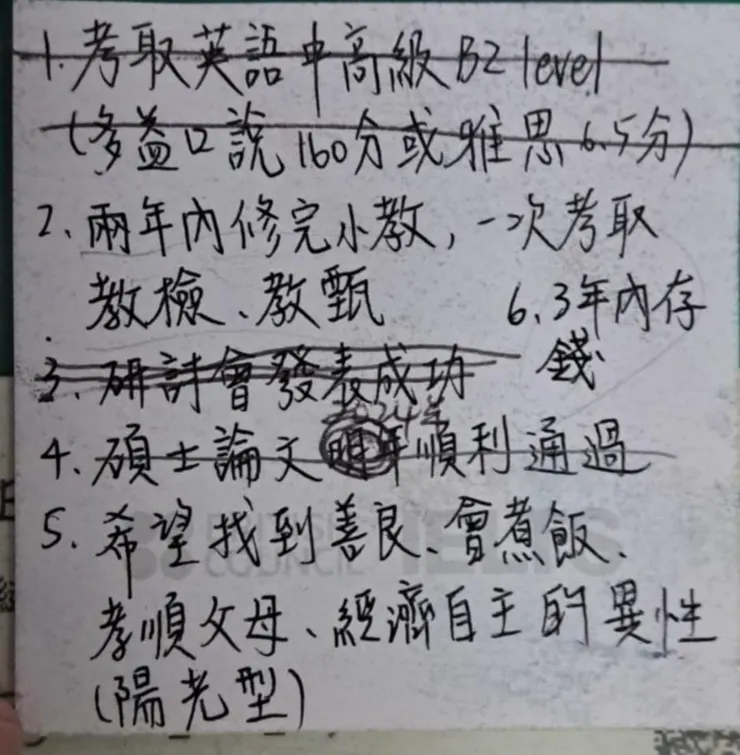 1. 考取英語中高級 B2 level
(多益口說 160分或雅思 6.5分)
2、兩年內修完小教，一次考取
教檢、教甄
6、3年內存
錢
3. 研討會發表成功
2024年
4、碩士論文明年順利通過
5、希望找到善良、會煮飯、
孝順父母、經濟自主的異性
(陽光型)
BRITISH COUNCIL IELTS